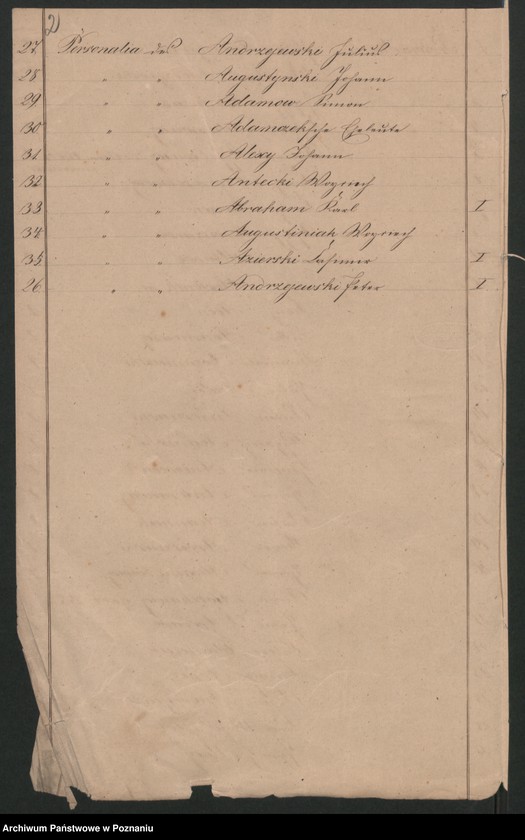 2)
27. Personalia des Andrzejewski Julius
28 " " Augustynski Johann
29 " " Adamow Simon
30 " " Adamczeksche Eheleute
31 " " Alexy Johann
32 " " Antecki Woyciech
33 " " Abraham Karl I
34 " " Augustiniak Woyciech
35 " " Azierski I
26. " " Andrzejewski Peter I
Archiwum Państwowe w Poznaniu